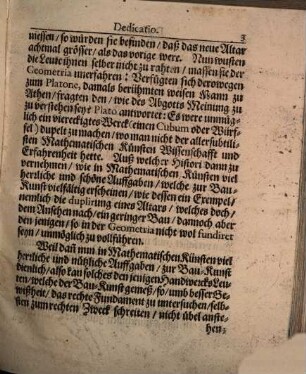 Dedicatio. 3
messen / so würden sie befinden / daß das neue Altar
achtmal grösser / als das vorige were. Nun wusten
die Leute ihnen selber nicht zu rahten / massen sie der
Geometria unerfahren: Verfügten sich derowegen
zum Platone, damals berühmten weisen Mann zu
Athen / fragten den / wie des Abgotts Meinung zu
zu verstehen seye Plato antwortet: Es were unmüg-
lich ein viereckigtes Werck (einen Cubum oder Würf-
fel) dupelt zu machen / wo man nicht der allersubtili-
sten Mathematischen Künsten Wissenschafft und
Erfahrenheit hette. Auß welcher Histori dann zu
vernehmen / wie in Mathematischen Künsten viel
herrliche und schöne Auffgaben / welche zur Bau-
Kunst vielfältig erscheinen / wie dessen ein Exempel /
nemlich die duplirung eines Altars / welches doch /
dem Ansehen nach / ein geringer Bau / dannoch aber
den jenigen / so in der Geometria nicht wol fundiret
seyn / unmöglich zu vollführen.
Weil daß nun in Mathematischen Künsten viel
herrliche und nützliche Auffgaben / zur Bau-Kunst
dienlich / also kan solches den jenigen Handwercks Leu-
ten / welche der Bau-Kunst gemeß / so / umb besser Ge-
wißheit / das rechte Fundament zu untersuchen / selb-
sten zum rechten Zweck schreiten / nicht übel anste-
hen: